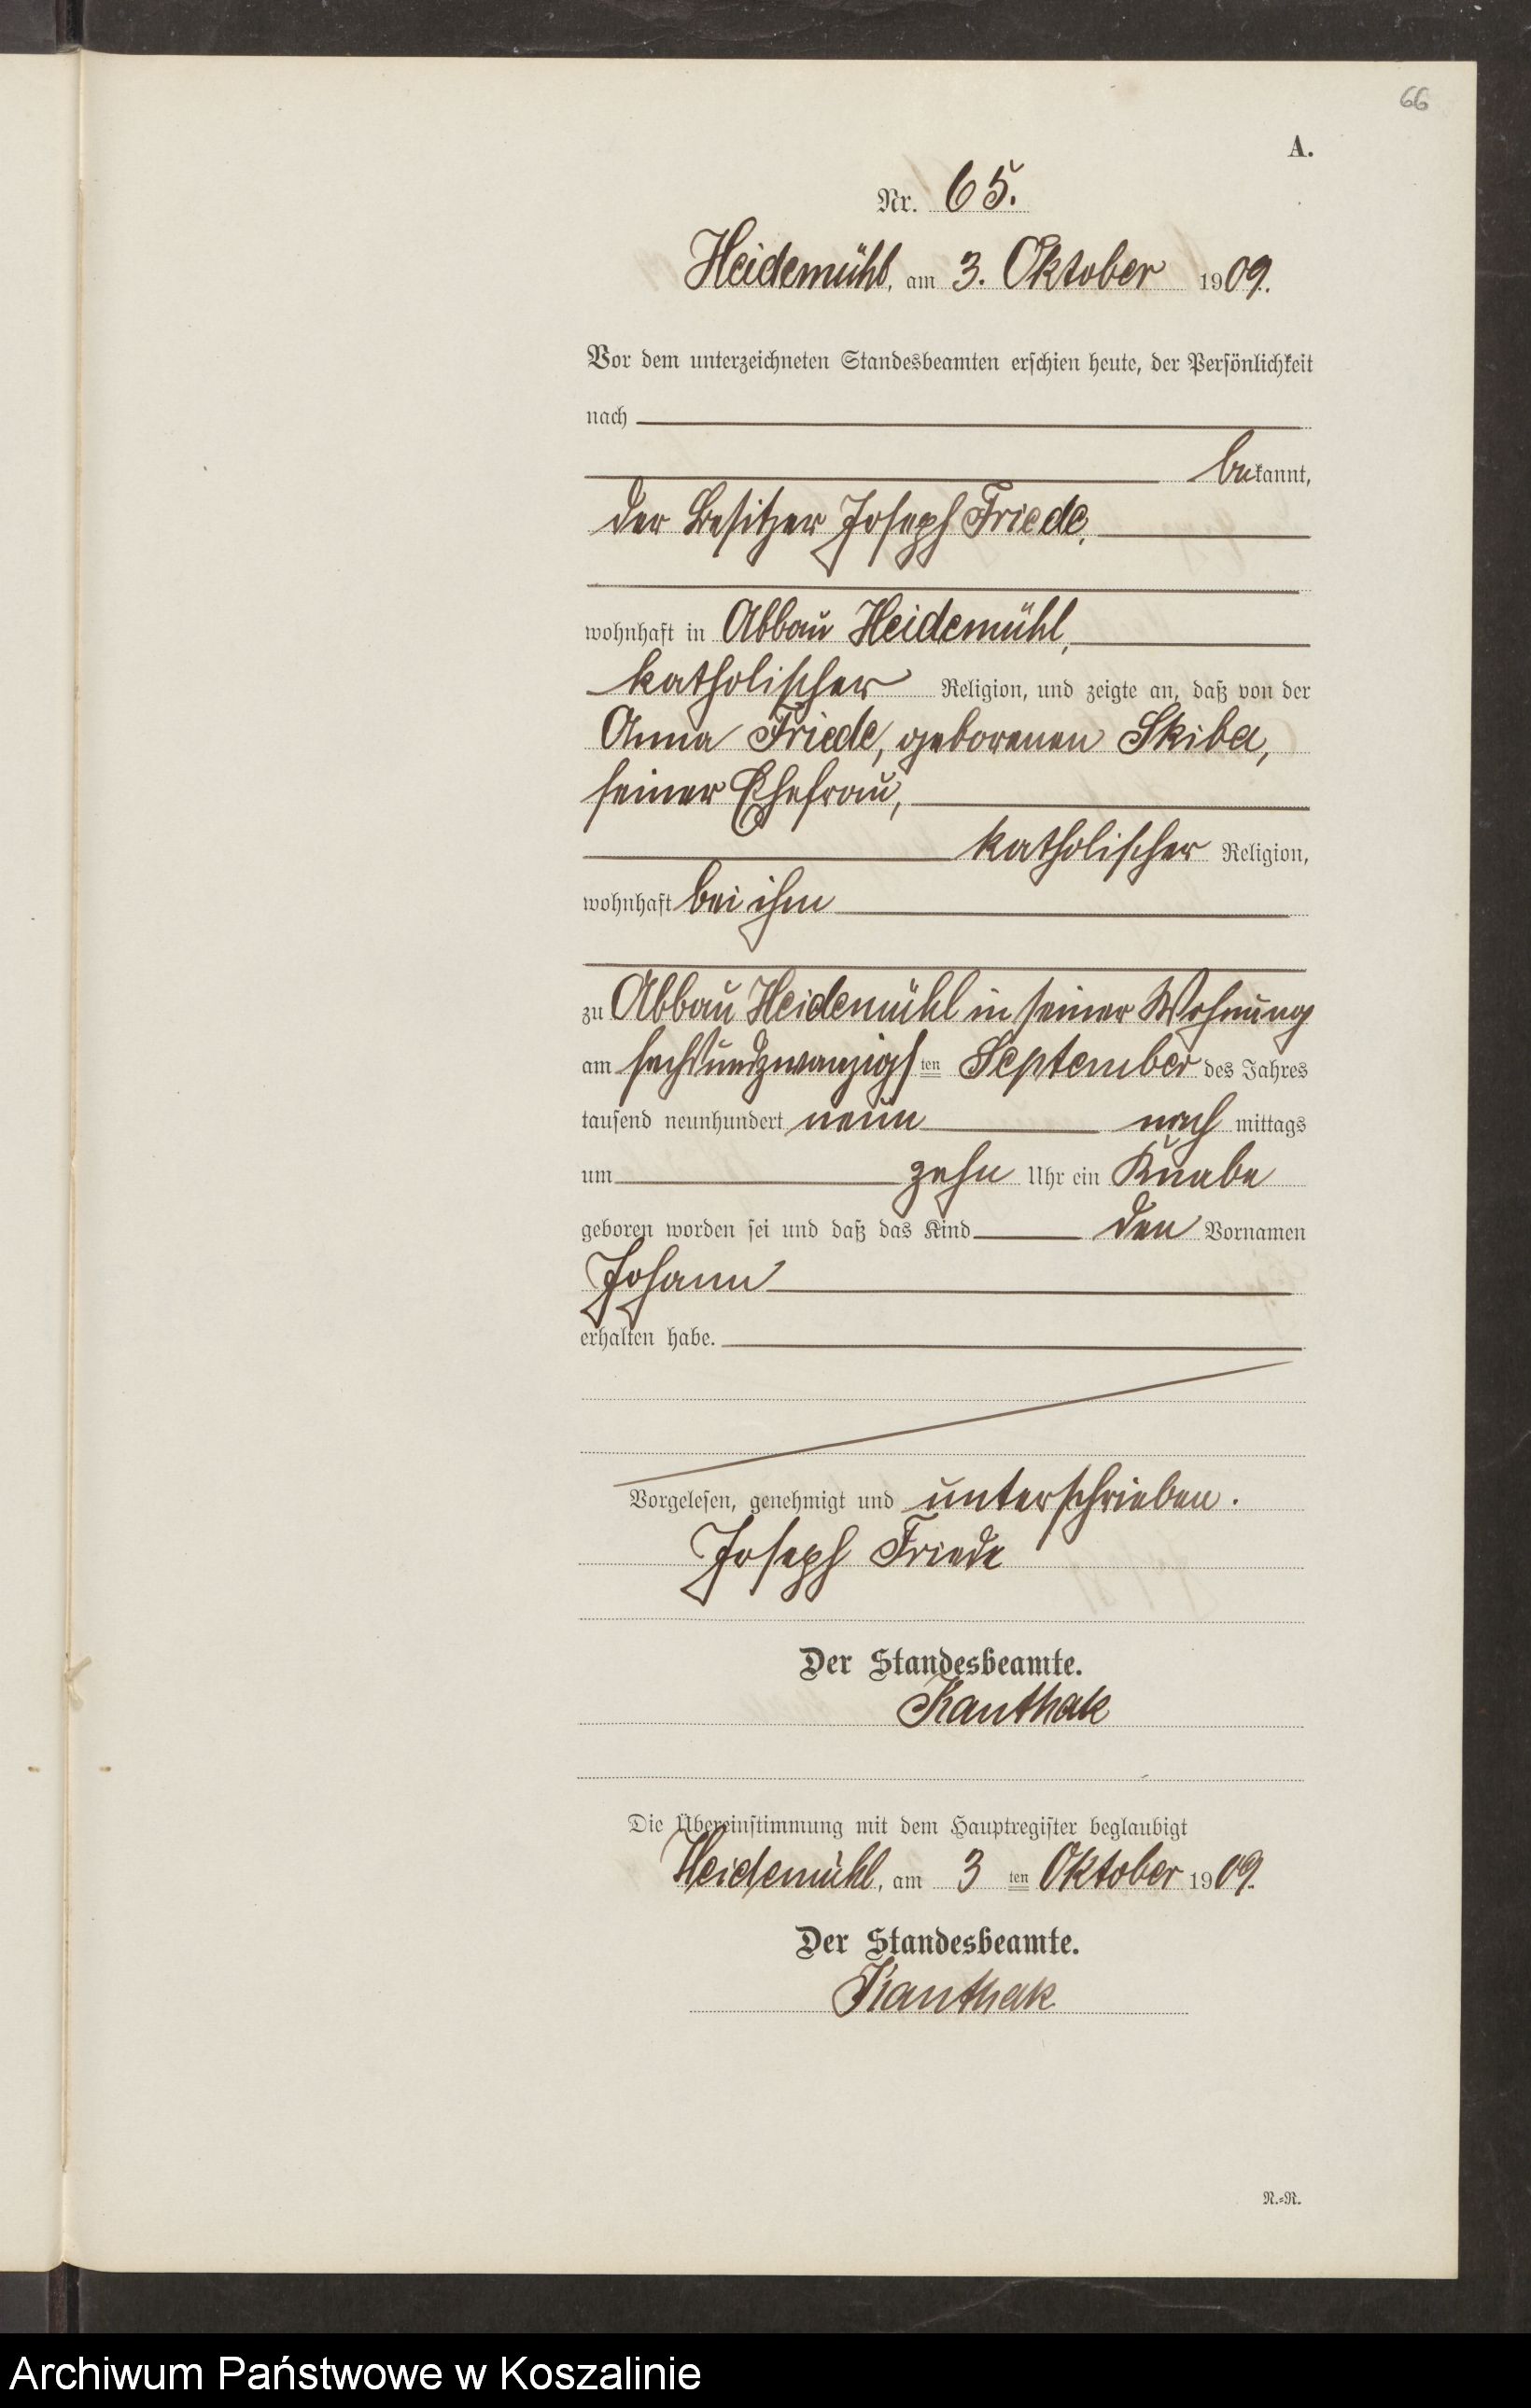 66
A.
Nr. 65.
Heidemühl, am 3. Oktober 1909.
Vor dem unterzeichneten Standesbeamten erschien heute, der Persönlichkeit
nach
bekannt,
der Besitzer Joseph Friede,
wohnhaft in Abbau Heidemühl,
katholischer Religion, und zeigte an, daß von der
Anna Friede, geborenen Skiba,
seiner Ehefrau,
katholischer Religion,
wohnhaft bei ihm
zu Abbau Heidemühl in seiner Wohnung
am sechsundzwanzigsten September des Jahres
tausend neunhundert neun nach mittags
um zehn Uhr ein Knabe
geboren worden sei und daß das Kind den Vornamen
Johann
erhalten habe.
Vorgelesen, genehmigt und unterschrieben.
Joseph Friede
Der Standesbeamte.
Kanthak
Die Übereinstimmung mit dem Hauptregister beglaubigt
Heidemühl, am 3 ten Oktober 1909.
Der Standesbeamte.
Kanthak
N.=R.
Archiwum Państwowe w Koszalinie